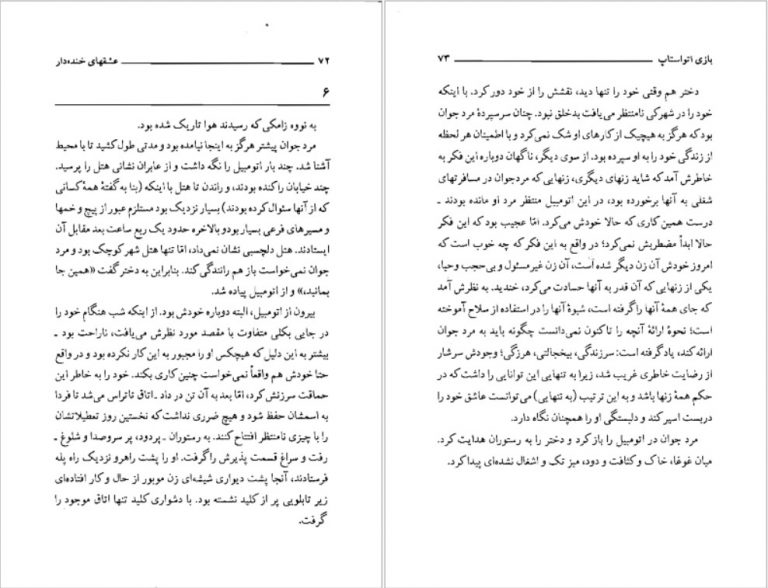 ۷۲ عشقهای خنده‌دار
۶
به نووه زامکی که رسیدند هوا تاریک شده بود.
مرد جوان پیشتر هرگز به اینجا نیامده بود و مدتی طول کشید تا با محیط
آشنا شد. چند بار اتومبیل را نگه داشت و از عابران نشانی هتل را پرسید.
چند خیابان را کنده بودند، و راندن تا هتل با اینکه (بنا به گفتهٔ همهٔ کسانی
که از آنها سئوال کرده بودند) بسیار نزدیک بود مستلزم عبور از پیچ و خمها
و مسیرهای فرعی بسیار بود و بالاخره حدود یک ربع ساعت بعد مقابل آن
ایستادند. هتل دلچسبی نشان نمی‌داد، امّا تنها هتل شهر کوچک بود و مرد
جوان نمی‌خواست باز هم رانندگی کند. بنابراین به دختر گفت «همین جا
بمانید،» و از اتومبیل پیاده شد.
بیرون از اتومبیل، البته دوباره خودش بود. از اینکه شب هنگام خود را
در جایی بکلی متفاوت با مقصد مورد نظرش می‌یافت، ناراحت بود ـ
بیشتر به این دلیل که هیچکس او را مجبور به این کار نکرده بود و در واقع
حتا خودش هم واقعاً نمی‌خواست چنین کاری بکند. خود را به خاطر این
حماقت سرزنش کرد، امّا بعد به آن تن در داد. اتاق تاتراس می‌شد تا فردا
به اسمشان حفظ شود و هیچ ضرری نداشت که نخستین روز تعطیلاتشان
را با چیزی نامنتظر افتتاح کنند. به رستوران ـ پردود، پر سروصدا و شلوغ ـ
رفت و سراغ قسمت پذیرش را گرفت. او را پشت راهرو نزدیک راه پله
فرستادند، آنجا پشت دیواری شیشه‌ای زن موبور از حال و کار افتاده‌ای
زیر تابلویی پر از کلید نشسته بود. با دشواری کلید تنها اتاق موجود را
گرفت.
بازی اتواستاپ ۷۳
دختر هم وقتی خود را تنها دید، نقشش را از خود دور کرد. با اینکه
خود را در شهرکی نامنتظر می‌یافت بدخلق نبود. چنان سرسپردهٔ مرد جوان
بود که هرگز به هیچیک از کارهای او شک نمی‌کرد و با اطمینان هر لحظه
از زندگی خود را به او سپرده بود. از سوی دیگر، ناگهان دوباره این فکر به
خاطرش آمد که شاید زنهای دیگری، زنهایی که مرد جوان در مسافرتهای
شغلی به آنها برخورده بود، در این اتومبیل منتظر مرد او مانده بودند ـ
درست همین کاری که حالا خودش می‌کرد. امّا عجیب بود که این فکر
حالا ابداً مضطربش نمی‌کرد؛ در واقع به این فکر که چه خوب است که
امروز خودش آن زن دیگر شده است، آن زن غیرمسئول و بی‌حجب و حیا،
یکی از زنهایی که آن قدر به آنها حسادت می‌کرد، خندید. به نظرش آمد
که جای همهٔ آنها را گرفته است، شیوهٔ آنها را در استفاده از سلاح آموخته
است؛ نحوهٔ ارائهٔ آنچه را تاکنون نمی‌دانست چگونه باید به مرد جوان
ارائه کند، یاد گرفته است: سرزندگی، بیخجالتی، هرزگی؛ وجودش سرشار
از رضایت خاطری غریب شد، زیرا به تنهایی این توانایی را داشت که در
حکم همهٔ زنها باشد و به این ترتیب (به تنهایی) می‌توانست عاشق خود را
دربست اسیر کند و دلبستگی او را همچنان نگاه دارد.
مرد جوان در اتومبیل را باز کرد و دختر را به رستوران هدایت کرد.
میان غوغا، خاک و کثافت و دود، میز تک و اشغال نشده‌ای پیدا کرد.